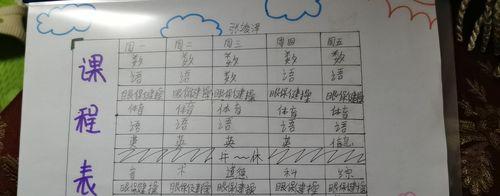 张浚泽
课程表
周一 周二 周三 周四 周五
数 数 数 数 数
语 语 数 语 语
眼保健操 眼保健操 眼保健操 眼保健操 眼保健操
体育 体育 体育 体育 体育
语 语 语 语 语
英 英 英 英 信息
午～休
音 道德 科 综
眼保健操 眼保健操 眼保健操 眼保健操 眼保健操